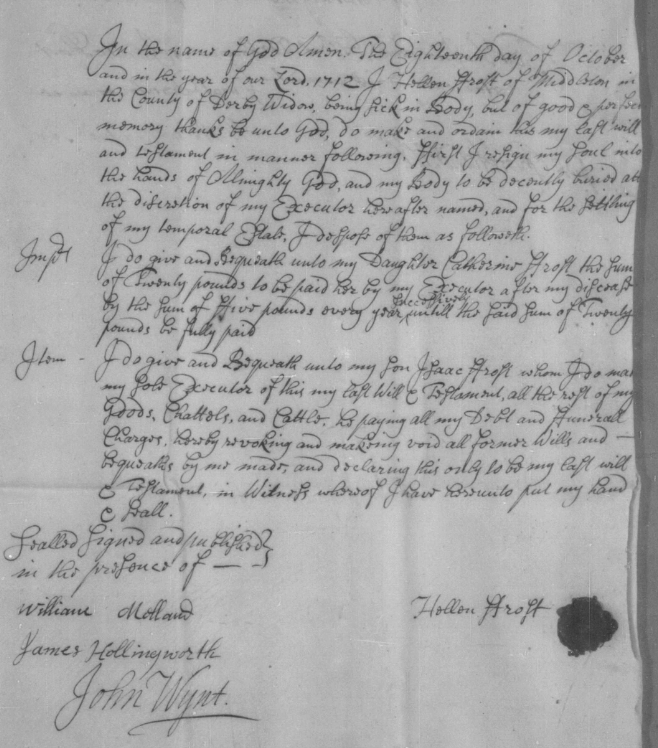 In the name of God Amen. The Eighteenth day of October
and in the year of our Lord. 1712 I Hellen ffrost of Middleton in
the County of Derby Widow, being sick in Body, but of good & perfect
memory thanks be unto God, do make and ordain this my last will
and testament in manner following. ffirst I resign my soul into
the hands of Almighty God, and my Body to be decently buried at
the discretion of my Executor hereafter named, and for the settling
of my temporal Estate, I despose of them as followeth.
Imprs I do give and Bequeath unto my Daughter Catherine ffrost the sum
of Twenty pounds to be paid her by my Executor after my discease
by the sum of ffive pounds every year successively untill the said sum of Twenty
pounds be fully paid
Item - I do give and Bequeath unto my son Isaac ffrost whom I do make
my sole Executor of this my last Will & Testament, all the rest of my
Goods, Chattels, and Cattle, he paying all my Debt and ffunerall
Charges, hereby revoking and makeing void all former Wills and —
bequeaths by me made, and declaring this only to be my last will
& Testament, in Witness whereof I have hereunto put my hand
& Seall.
Sealled Signed and published
in the presence of — —
William Molland
Hellen ffrost
James Hollingworth
John Wynt.